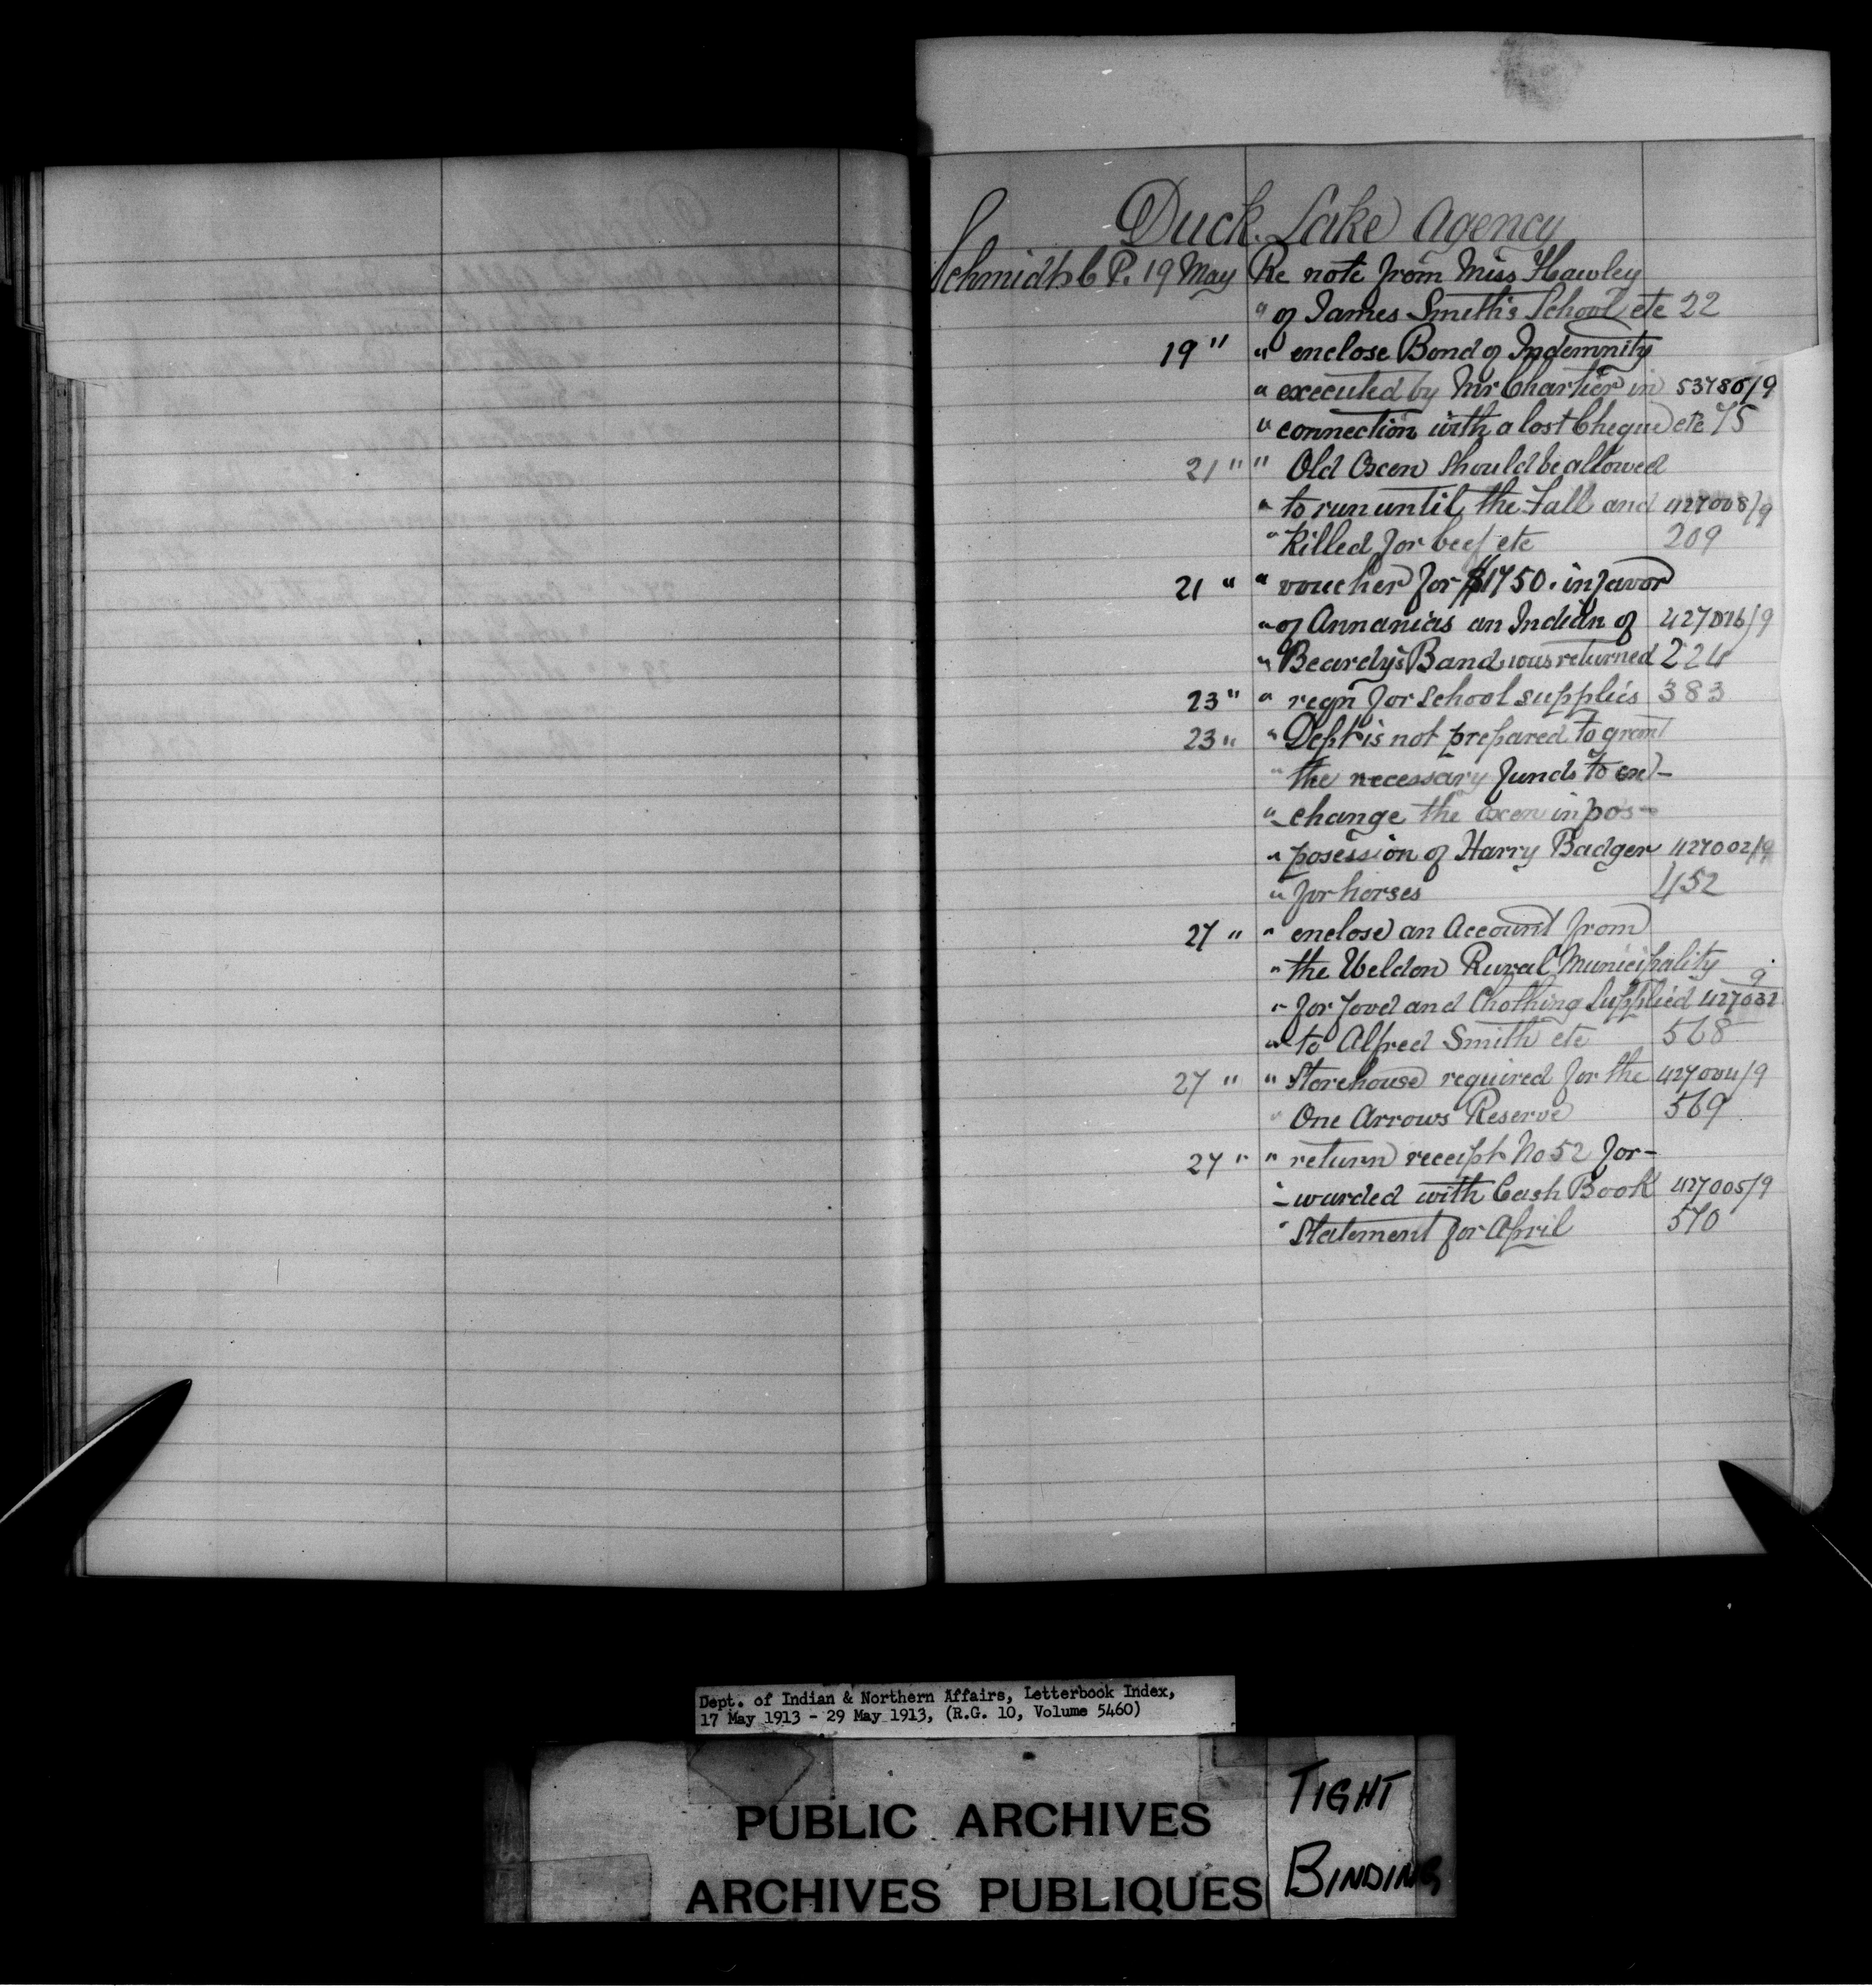 Duck Lake Agency
Schmidt C P. 19 May Re note from Miss Hawley
" of James Smith's School etc 22
19 " " enclose Bond of Indemnity
" executed by Mr Chartier in 537805/9
" connection with a lost Cheque etc 75
21 " " Old Oxen should be allowed
" to run until the Fall and 427008/9
" Killed for beef etc 209
21 " " voucher for $1750. in favor
" of Annanias an Indian of 427016/9
" Beardy's Band was returned 224
23 " " reqn for school supplies 383
23 " " Dept is not prepared to grant
" the necessary funds to ex-
" -change the oxen in pos-
" posession of Harry Badger 427002/9
" for horses 452
27 " " enclose an Account from
" the Weldon Rural Municipality 9
" for food and Clothing Supplied 427032
" to Alfred Smith etc 568
27 " " Storehouse required for the 427004/9
" One Arrows Reserve 569
27 " " return receipt No 52 for-
" -warded with Cash Book 427005/9
" Statement for April 570
Dept. of Indian & Northern Affairs, Letterbook Index,
17 May 1913 - 29 May 1913, (R.G. 10, Volume 5460)
PUBLIC ARCHIVES
ARCHIVES PUBLIQUES
TIGHT
BINDING